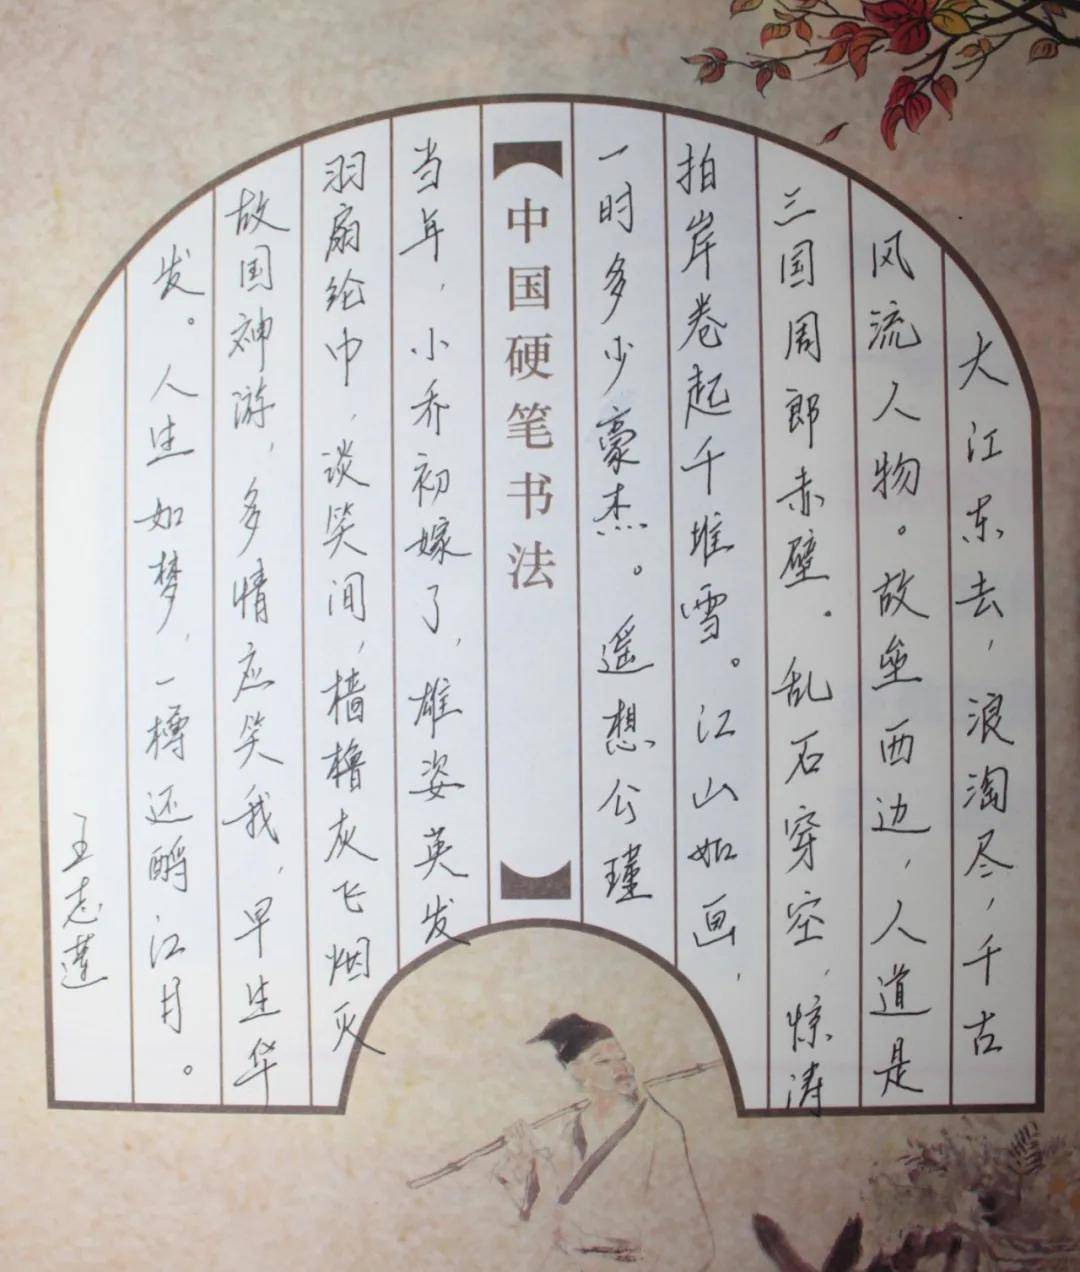 大江东去，浪淘尽，千古
风流人物。故垒西边，人道是
三国周郎赤壁。乱石穿空，惊涛
拍岸卷起千堆雪。江山如画，
一时多少豪杰。遥想公瑾
中国硬笔书法
当年，小乔初嫁了，雄姿英发
羽扇纶巾，谈笑间，樯橹灰飞烟灭
故国神游，多情应笑我，早生华
发。人生如梦，一樽还酹江月。
王志莲